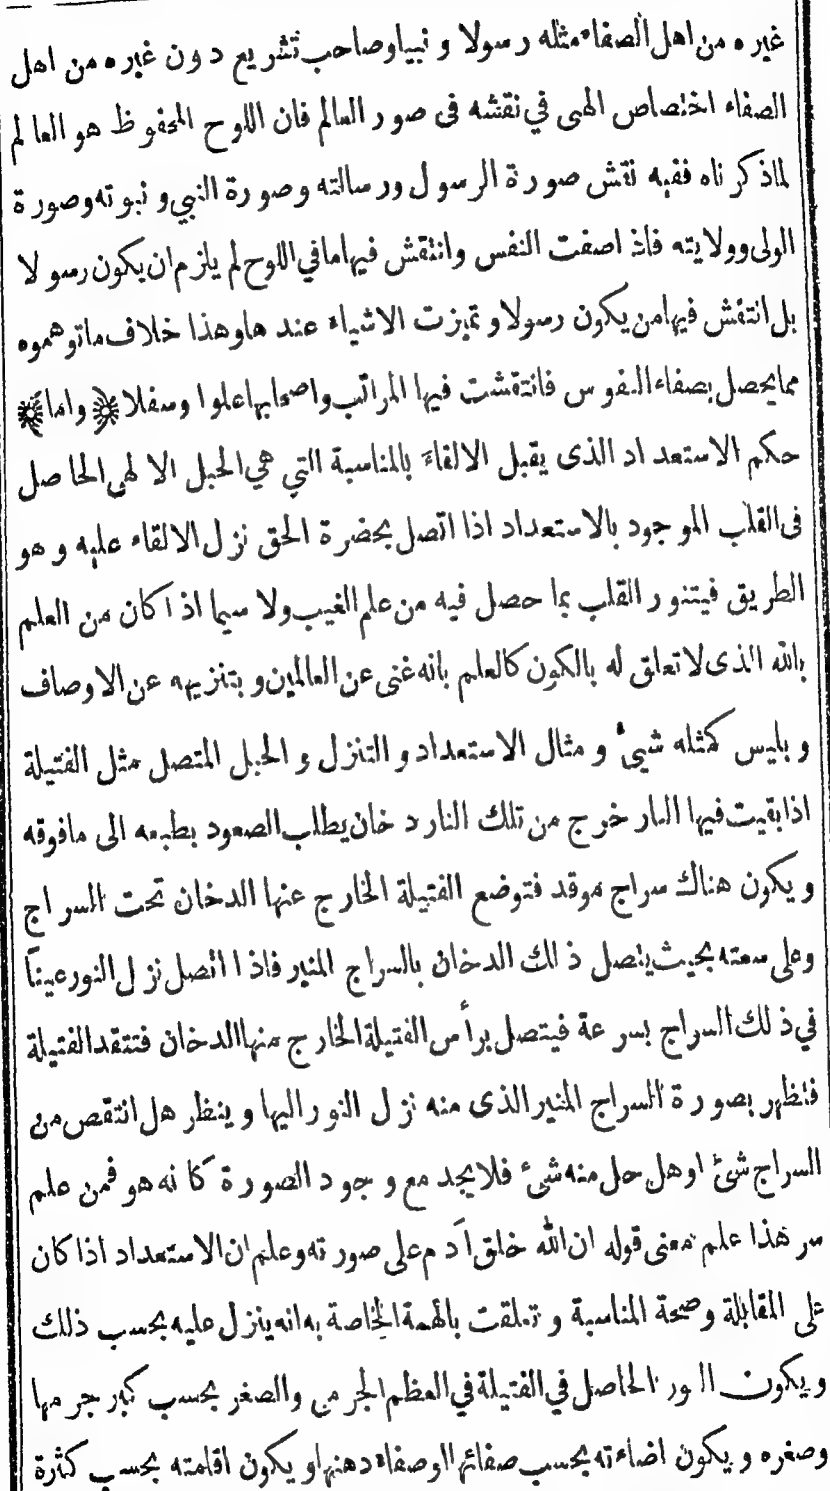 غيره من اهل الصفاء مثله رسولا و نبيا وصاحب تشريع دون غيره من اهل
الصفاء اختصاص الهى في نقشه فى صور العالم فان اللوح المحفوظ هو العالم
لما ذكرناه ففيه نقش صورة الرسول ورسالته وصورة النبي و نبوته وصورة
الولى وولايته فاذا صفت النفس وانتقش فيها ما في اللوح لم يلزم ان يكون رسولا
بل انتقش فيها من يكون رسولا و تميزت الاشياء عندها وهذا خلاف ما توهموه
مما يحصل بصفاء النفوس فانتقشت فيها المراتب واصحابها علوا وسفلا ﴿ واما ﴾
حكم الاستعداد الذى يقبل الالقاءَ بالمناسبة التي هي الحبل الالهى الحاصل
فى القلب الموجود بالاستعداد اذا اتصل بحضرة الحق نزل الالقاء عليه و هو
الطريق فيتنور القلب بما حصل فيه من علم الغيب ولا سيما اذا كان من العلم
بالله الذى لا تعلق له بالكون كالعلم بانه غنى عن العالمين و بتنزيهه عن الاوصاف
و بليس كمثله شيءٌ و مثال الاستعداد و التنزل و الحبل المتصل مثل الفتيلة
اذا بقيت فيها النار خرج من تلك النار دخان يطلب الصعود بطبعه الى ما فوقه
و يكون هناك سراج موقد فتوضع الفتيلة الخارج عنها الدخان تحت السراج
وعلى سمته بحيث يتصل ذلك الدخان بالسراج المنير فاذا اتصل نزل النور عيناً
في ذلك السراج بسرعة فيتصل برأس الفتيلة الخارج منها الدخان فتتقد الفتيلة
فتظهر بصورة السراج المنير الذى منه نزل النور اليها و ينظر هل انتقص من
السراج شئ او هل حل منه شىء فلا يجد مع وجود الصورة كانه هو فمن علم
سر هذا علم معنى قوله ان الله خلق آدم على صورته وعلم ان الاستعداد اذا كان
على المقابلة وصحة المناسبة و تعلقت بالهمة الخاصة به انه ينزل عليه بحسب ذلك
و يكون النور الحاصل في الفتيلة في العظم الجرمى والصغر بحسب كبر جرمها
وصغره و يكون اضاءته بحسب صفائها او صفاء دهنها و يكون اقامته بحسب كثرة